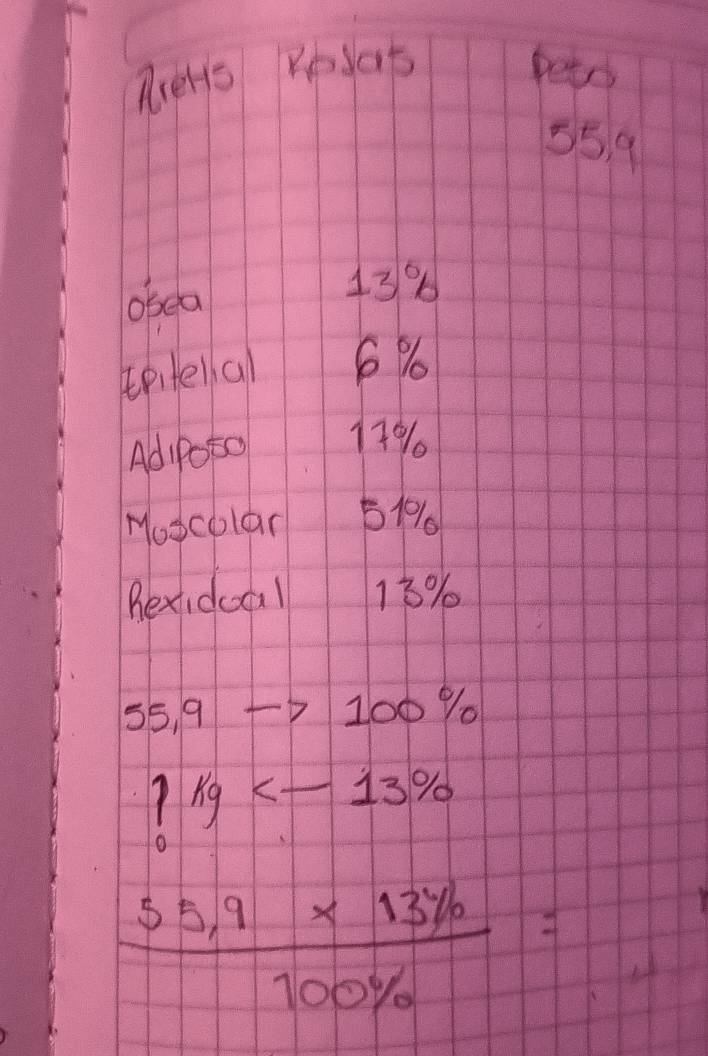 Peso
55,9
Osea 13%
Epitelial 6%
Adiposo 17%
Muscular 51%
Rexidual 13%
55,9 -> 100%
? Kg <- 13%
55,9 x 13% =
100%